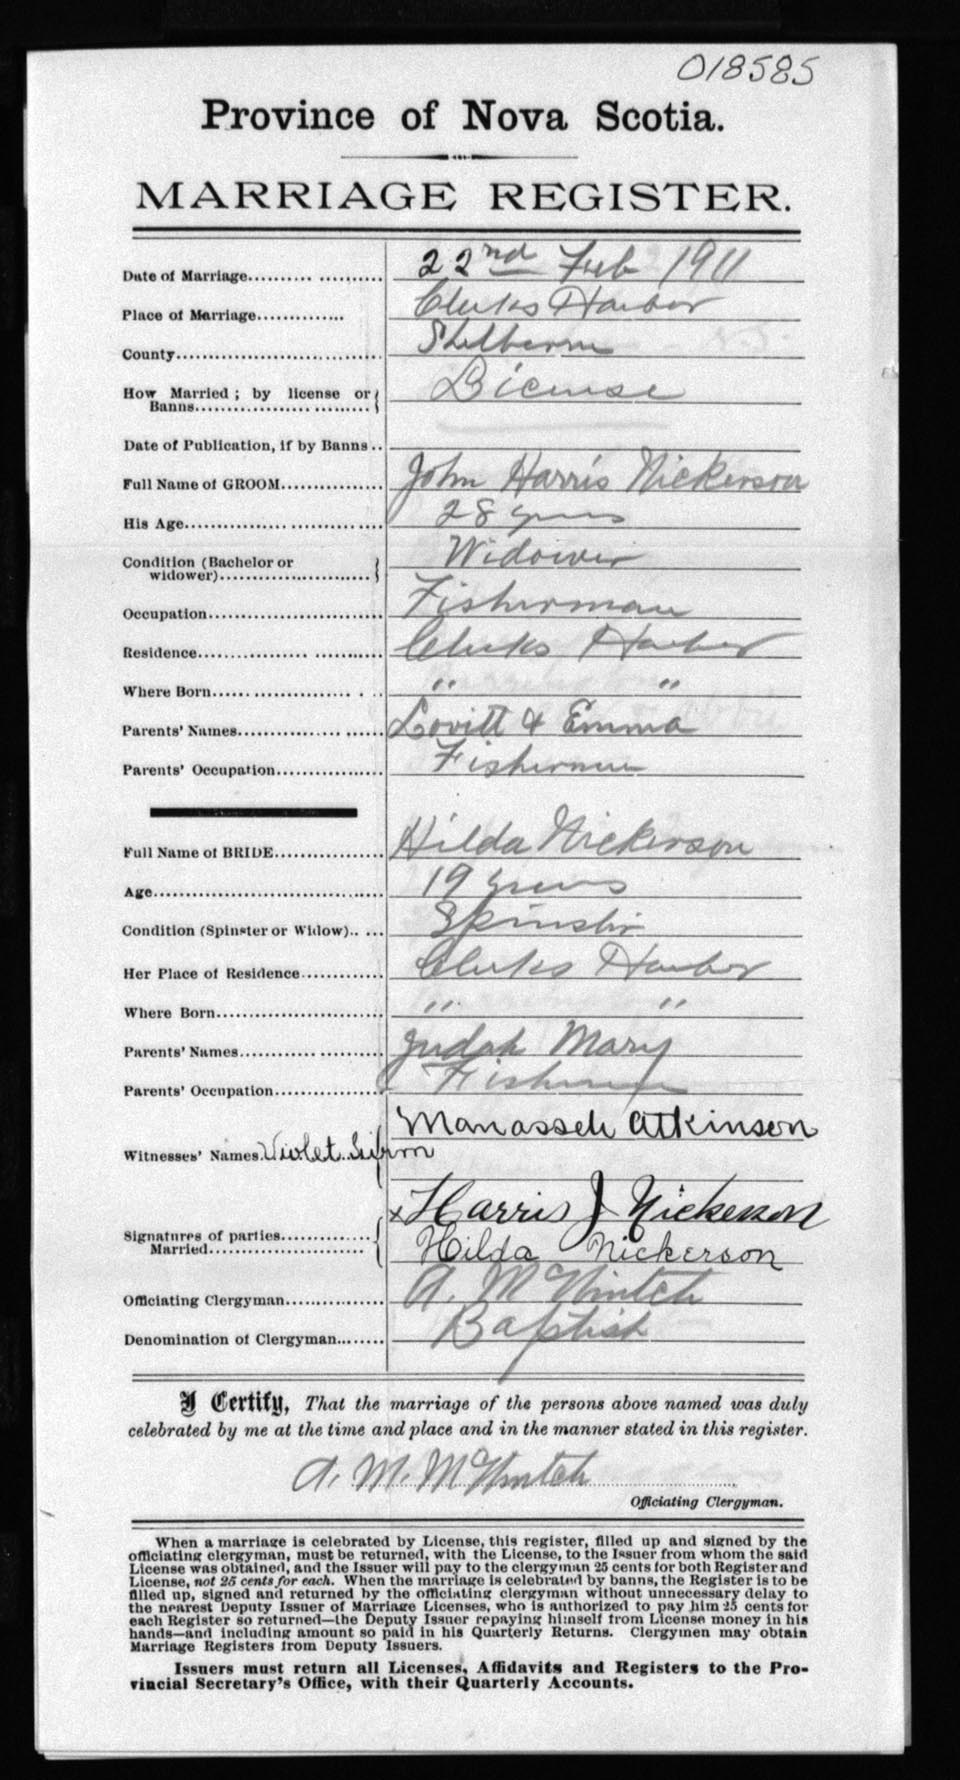 018585
Province of Nova Scotia.
MARRIAGE REGISTER.
Date of Marriage 22nd Feb 1911
Place of Marriage Clerks Harbor
County Shelburne
How Married ; by license or
Banns License
Date of Publication, if by Banns
Full Name of GROOM John Harris Nickerson
His Age 28 years
Condition (Bachelor or
widower) Widower
Occupation Fisherman
Residence Clerks Harbor
Where Born " "
Parents' Names Lovitt & Emma
Parents' Occupation Fisherman
Full Name of BRIDE Hilda Nickerson
Age 19 years
Condition (Spinster or Widow) Spinster
Her Place of Residence Clerks Harbor
Where Born " "
Parents' Names Judah Mary
Parents' Occupation Fisherman
Manasseh Atkinson
Witnesses' Names Violet
x Harris J Nickerson
Signatures of parties
Married Hilda Nickerson
Officiating Clergyman A. M
Denomination of Clergyman Baptist
I Certify, That the marriage of the persons above named was duly
celebrated by me at the time and place and in the manner stated in this register.
A. M.
Officiating Clergyman.
When a marriage is celebrated by License, this register, filled up and signed by the
officiating clergyman, must be returned, with the License, to the Issuer from whom the said
License was obtained, and the Issuer will pay to the clergyman 25 cents for both Register and
License, not 25 cents for each. When the marriage is celebrated by banns, the Register is to be
filled up, signed and returned by the officiating clergyman without unnecessary delay to
the nearest Deputy Issuer of Marriage Licenses, who is authorized to pay him 25 cents for
each Register so returned—the Deputy Issuer repaying himself from License money in his
hands—and including amount so paid in his Quarterly Returns. Clergymen may obtain
Marriage Registers from Deputy Issuers.
Issuers must return all Licenses, Affidavits and Registers to the Pro-
vincial Secretary's Office, with their Quarterly Accounts.